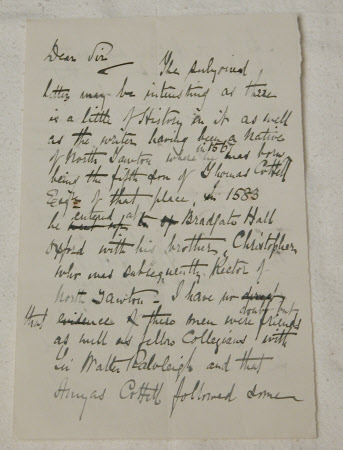 Dear Sir, The subjoined
letter may be interesting as there
is a little of History in it as well
as the writer having been a native
of North Tawton where he was born
in 1567
being the fifth son of Thomas Cottell
Esqre of that place, In 1583
he entered at Bradgate Hall
Oxford with his brother, Christopher
who was subsequently Rector of
North Tawton - I have no
doubt but
that these men were friends
as well as fellow Collegians with
Sir Walter Raleigh and that
Amyas Cottell followed some